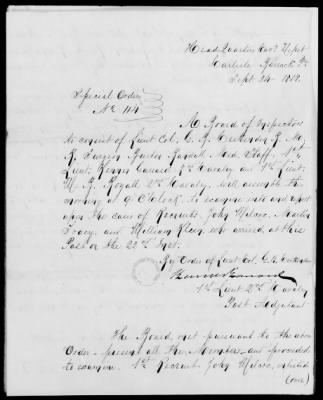 Head Quarters Cav. Depot
Carlisle Barracks Pa
Sept 24 18
Special Order
No 114
A Board of Inspectors
to consist of Lieut Col. G. B. Crittenden R. M.
R. Surgeon Burton Randall, Med. Staff,
Lieut. Cavalry and 1st Lieut.
W. B. Royall 2nd Cavalry, will assemble this
morning at 9 O'Clock, to examine into and report
upon the cases of Recruits, John Wilcox, Martin
Tracy, and William who arrived at this
Post on the 22nd Inst.
By Order of Lieut Col. G. B. Crittenden
1st Lieut 2nd Cavalry
Post Adjutant
The Board, met pursuant to the above
Order present all the Members and proceeded
to examine. 1st Recruit John Wilcox, enlisted
(over)